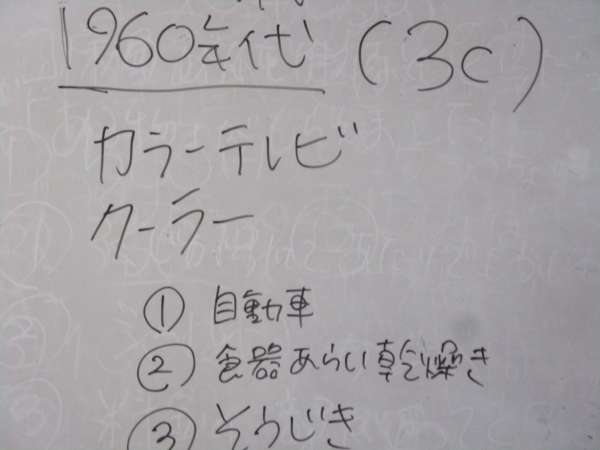 1960年代 (3c)
カラーテレビ
クーラー
① 自動車
② 食器あらい乾燥き
③ そうじき